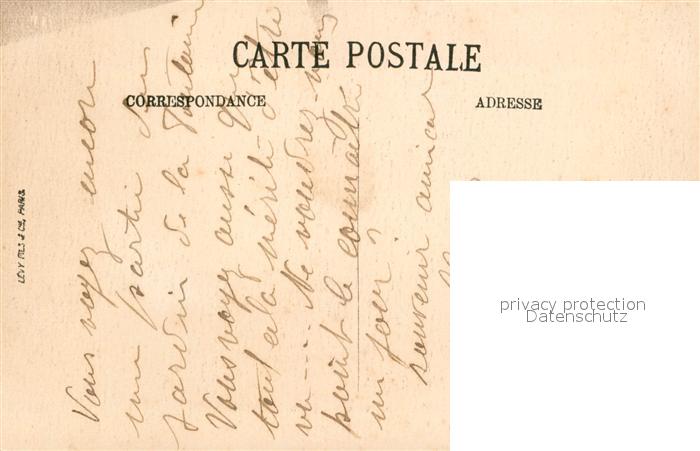 CARTE POSTALE
CORRESPONDANCE
ADRESSE
LÉVY FILS & Cie, PARIS
Vous voyez encore
une partie du
jardin de la Fontaine
Vous voyez aussi que
tout cela mérite d'être
vu.... Ne voudrez-vous
point le connaître
un jour ?
souvenir amical
privacy protection
Datenschutz